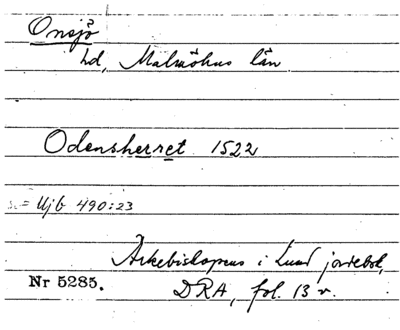 Onsjö
hd, Malmöhus län
Odensherret 1522
= Ujb 490:23
Ärkebiskopens i Lund jordebok,
Nr 5285. DRA, fol. 13 v.